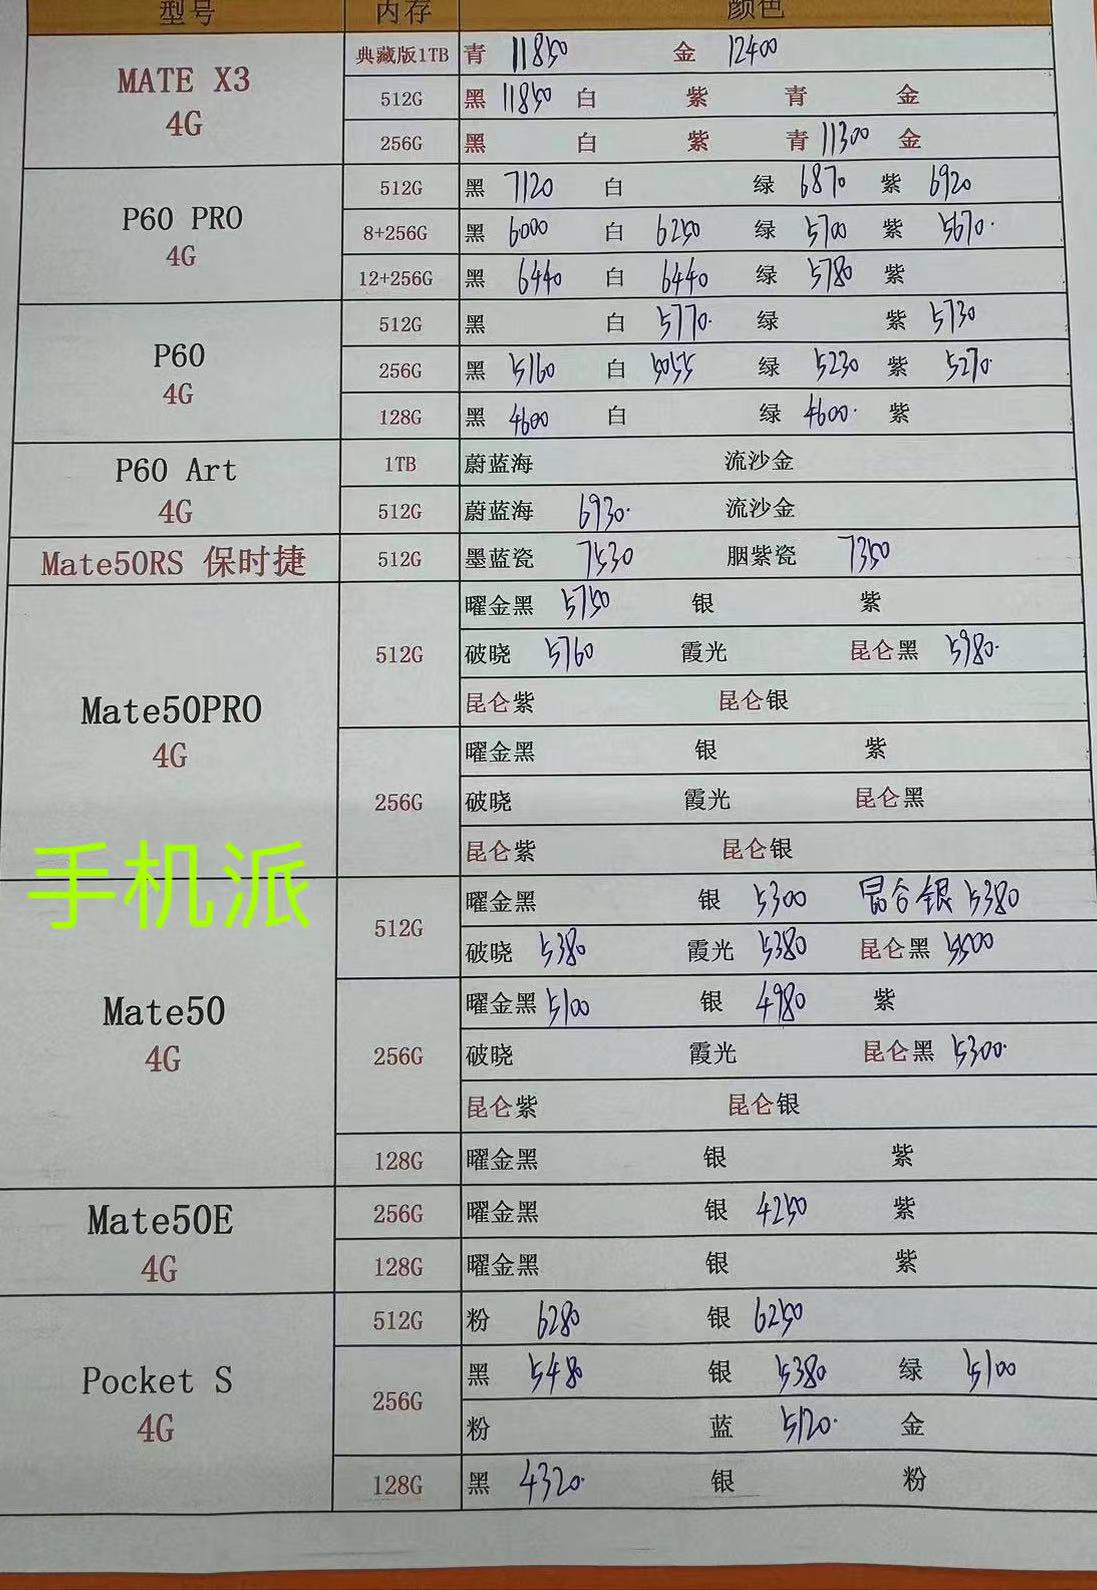 型号 内存 颜色
典藏版1TB 青 11850 金 12400
MATE X3
512G 黑 11850 白 紫 青 金
4G
256G 黑 白 紫 青 11300 金
512G 黑 7120 白 绿 6870 紫 6920
P60 PRO
8+256G 黑 6000 白 6250 绿 5700 紫 5670.
4G
12+256G 黑 6440 白 6440 绿 5780 紫
512G 黑 白 5770. 绿 紫 5730
P60
256G 黑 5160 白 5055 绿 5230 紫 5270.
4G
128G 黑 4600 白 绿 4600. 紫
P60 Art
1TB 蔚蓝海 流沙金
4G
512G 蔚蓝海 6930. 流沙金
Mate50RS 保时捷 512G 墨蓝瓷 7530 胭紫瓷 7350
曜金黑 5750 银 紫
512G 破晓 5760 霞光 昆仑黑 5980.
昆仑紫 昆仑银
Mate50PRO
4G
曜金黑 银 紫
256G 破晓 霞光 昆仑黑
昆仑紫 昆仑银
手机派
曜金黑 银 5300 昆仑银 5380
512G
破晓 5380 霞光 5380 昆仑黑 5500
Mate50
曜金黑 5100 银 4980 紫
4G
256G 破晓 霞光 昆仑黑 5300.
昆仑紫 昆仑银
128G 曜金黑 银 紫
Mate50E
256G 曜金黑 银 4250 紫
4G
128G 曜金黑 银 紫
512G 粉 6280 银 6250
Pocket S
黑 5480 银 5380 绿 5100
256G
4G
粉 蓝 5120. 金
128G 黑 4320. 银 粉